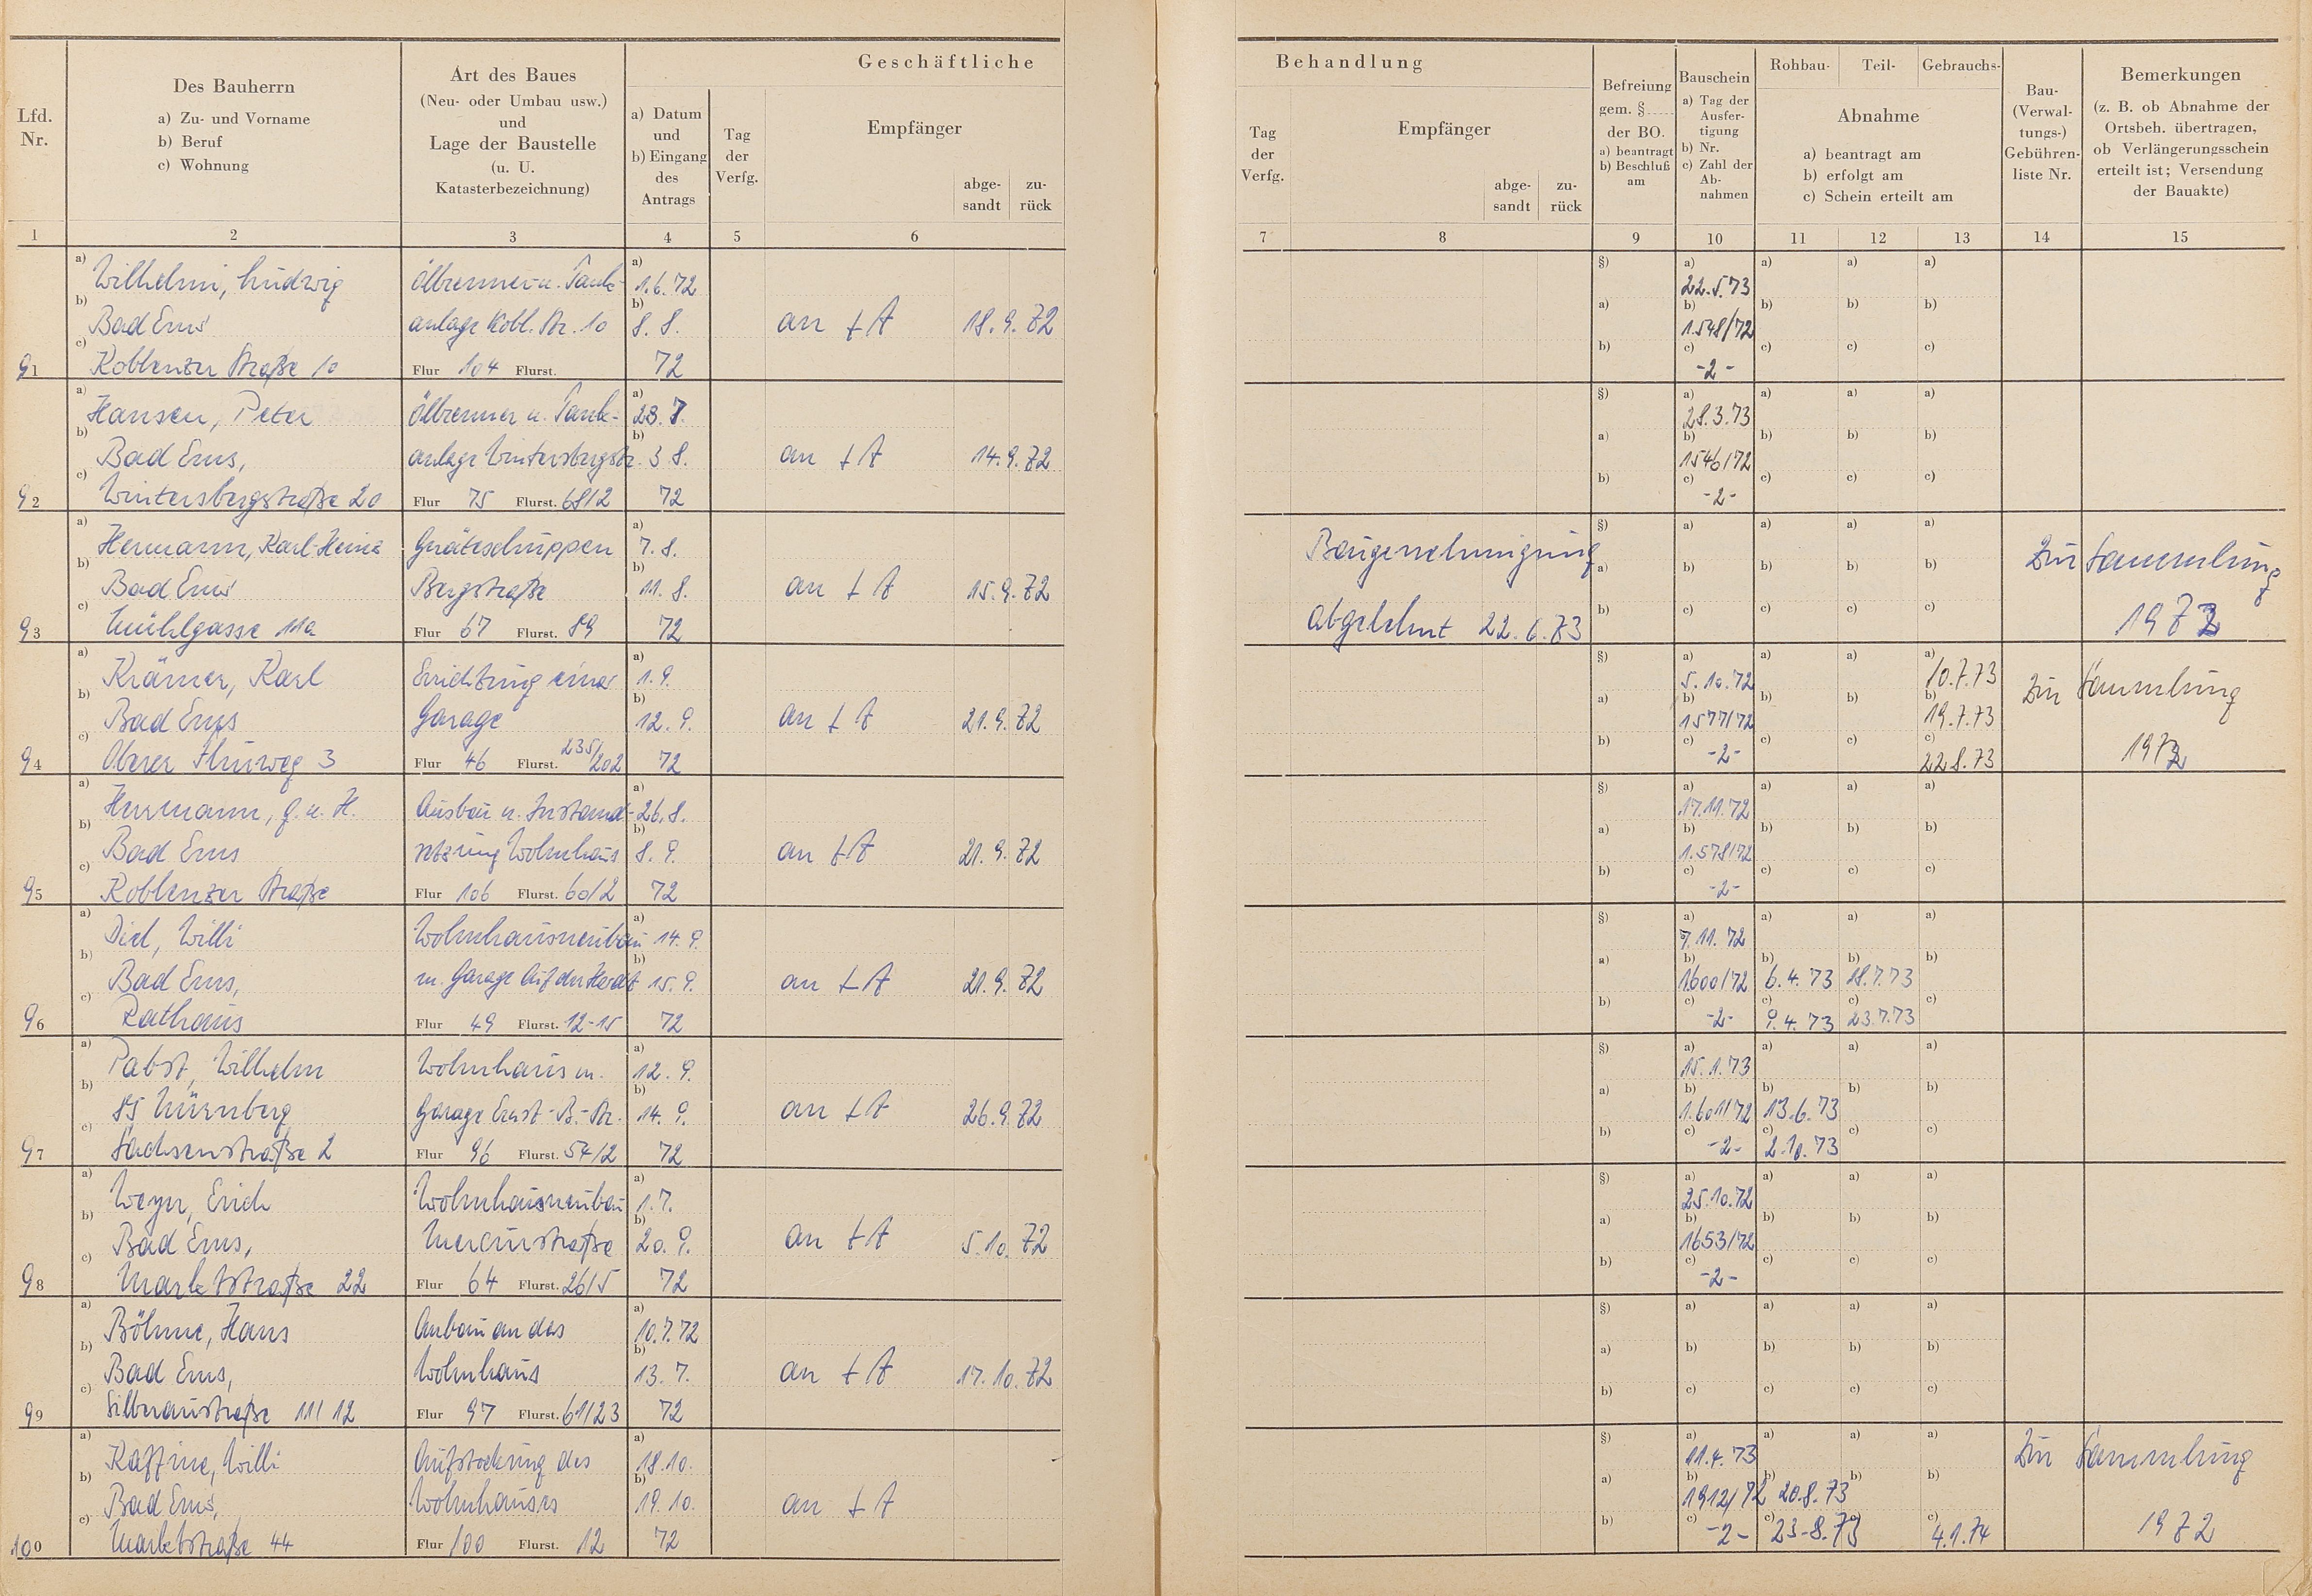 Geschäftliche
Behandlung
Lfd. Nr.
Des Bauherrn
a) Zu- und Vorname
b) Beruf
c) Wohnung
Art des Baues
(Neu- oder Umbau usw.)
und
Lage der Baustelle
(u. U.
Katasterbezeichnung)
a) Datum
und
b) Eingang
des
Antrags
Tag
der
Verfg.
Empfänger
abge-
sandt
zu-
rück
Tag
der
Verfg.
Empfänger
abge-
sandt
zu-
rück
Befreiung
gem. §
der BO.
a) beantragt
b) Beschluß
am
Bauschein
a) Tag der
Ausfer-
tigung
b) Nr.
c) Zahl der
Ab-
nahmen
Rohbau- Teil- Gebrauchs-
Abnahme
a) beantragt am
b) erfolgt am
c) Schein erteilt am
Bau-
(Verwal-
tungs-)
Gebühren-
liste Nr.
Bemerkungen
(z. B. ob Abnahme der
Ortsbeh. übertragen,
ob Verlängerungsschein
erteilt ist; Versendung
der Bauakte)
1 2 3 4 5 6 7 8 9 10 11 12 13 14 15
a) Wilhelmi, Ludwig Ölbrenner u. Tank- a) 1.6.72 §) a) 22.5.73 a) a) a)
b) Bad Ems anlage Kobl. Str. 10 b) 8.8. an 18.9.72 a) b) 1.548/72 b) b) b)
91 c) Koblenzer Straße 10 Flur 104 Flurst. 72 b) c) -2- c) c) c)
a) Hansen, Peter Ölbrenner u. Tank- a) 28.7. §) a) 28.3.73 a) a) a)
b) Bad Ems, anlage Wintersbergstr. b) 3.8. an 14.9.72 a) b) 1546/72 b) b) b)
92 c) Wintersbergstraße 20 Flur 75 Flurst. 68/2 72 b) c) -2- c) c) c)
a) Hermann, Karl-Heinz Geräteschuppen a) 7.8. Baugenehmigung §) a) a) a) a) Zur Sammlung
b) Bad Ems Bergstraße b) 11.8. an 15.9.72 a) b) b) b) b)
93 c) Mühlgasse 11a Flur 67 Flurst. 89 72 abgelehnt 22.6.73 b) c) c) c) c) 1972
a) Krämer, Karl Errichtung einer a) 1.9. §) a) 5.10.72 a) a) a) 10.7.73 Zur Sammlung
b) Bad Ems Garage b) 12.9. an 21.9.72 a) b) 1577/72 b) b) b) 19.7.73
94 c) Oberer 3 Flur 46 Flurst. 235/202 72 b) c) -2- c) c) c) 22.8.73 1972
a) Hermann, G. u. H. Ausbau u. Instand- a) 26.8. §) a) 17.11.72 a) a) a)
b) Bad Ems setzung Wohnhaus b) 8.9. an 21.9.72 a) b) 1.578/72 b) b) b)
95 c) Koblenzer Straße Flur 106 Flurst. 60/2 72 b) c) -2- c) c) c)
a) Diel, Willi Wohnhausneubau a) 14.9. §) a) 7.11.72 a) a) a)
b) Bad Ems, m. Garage Auf der b) 15.9. an 21.9.72 a) b) 1.600/72 b) 6.4.73 b) 18.7.73 b)
96 c) Rathaus Flur 49 Flurst. 12-15 72 b) c) -2- c) 9.4.73 c) 23.7.73 c)
a) Pabst, Wilhelm Wohnhaus m. a) 12.9. §) a) 15.1.73 a) a) a)
b) 85 Nürnberg Garage Ernst-B.-Str. b) 14.9. an 26.9.72 a) b) 1.601/72 b) 13.6.73 b) b)
97 c) Sachsenstraße 2 Flur 96 Flurst. 54/2 72 b) c) -2- c) 2.10.73 c) c)
a) Erich Wohnhausneubau a) 1.7. §) a) 25.10.72 a) a) a)
b) Bad Ems, b) 20.9. an 5.10.72 a) b) 1653/72 b) b) b)
98 c) Marktstraße 22 Flur 64 Flurst. 26/5 72 b) c) -2- c) c) c)
a) Böhme, Hans Anbau an das a) 10.7.72 §) a) a) a) a)
b) Bad Ems, Wohnhaus b) 13.7. an 17.10.72 a) b) b) b) b)
99 c) Silberaustraße 11/12 Flur 97 Flurst. 61/23 72 b) c) c) c) c)
a) Kaffine, Willi Aufstockung des a) 18.10. §) a) 11.4.73 a) a) a) Zur Sammlung
b) Bad Ems, Wohnhauses b) 19.10. an a) b) 1912/72 b) 20.8.73 b) b)
100 c) Marktstraße 44 Flur 100 Flurst. 12 72 b) c) -2- c) 23-8.73 c) 4.1.74 1972